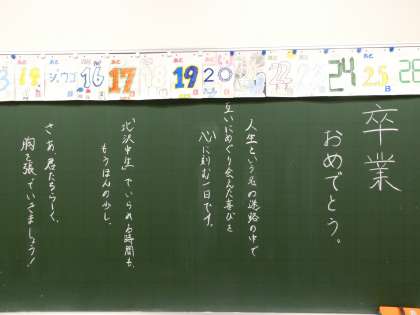 あと 18 日
あと ジュウゴ
あと 16 日
あと 17
18
あと 19 日
あと 20
22
23
24
あと 25 日
28
卒業
おめでとう。
人生という名の迷路の中で
互いにめぐり会えた喜びを
心に刻む一日です。
"北沢中生"でいられる時間も、
もうほんの少し。
さあ君たちらしく、
胸を張っていきましょう！